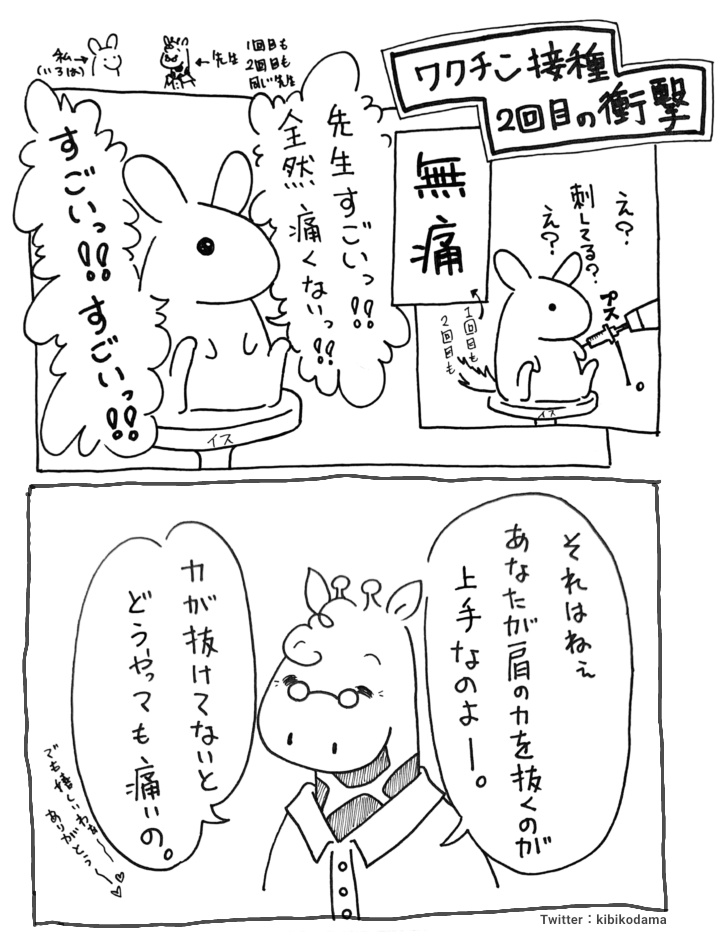 ワクチン接種
2回目の衝撃
私→
(いろは)
←先生
1回目も
2回目も
同じ先生
え?
刺してる?
え?
プス
無痛
1回目も
2回目も
イス
先生すごいっ!!
全然痛くないっ!!
すごいっ!!すごいっ!!
イス
それはねぇ
あなたが肩の力を抜くのが
上手なのよー。
力が抜けてないと
どうやっても痛いの。
でも嬉しいわぁ〜
ありがとう〜♡♡
Twitter：kibikodama